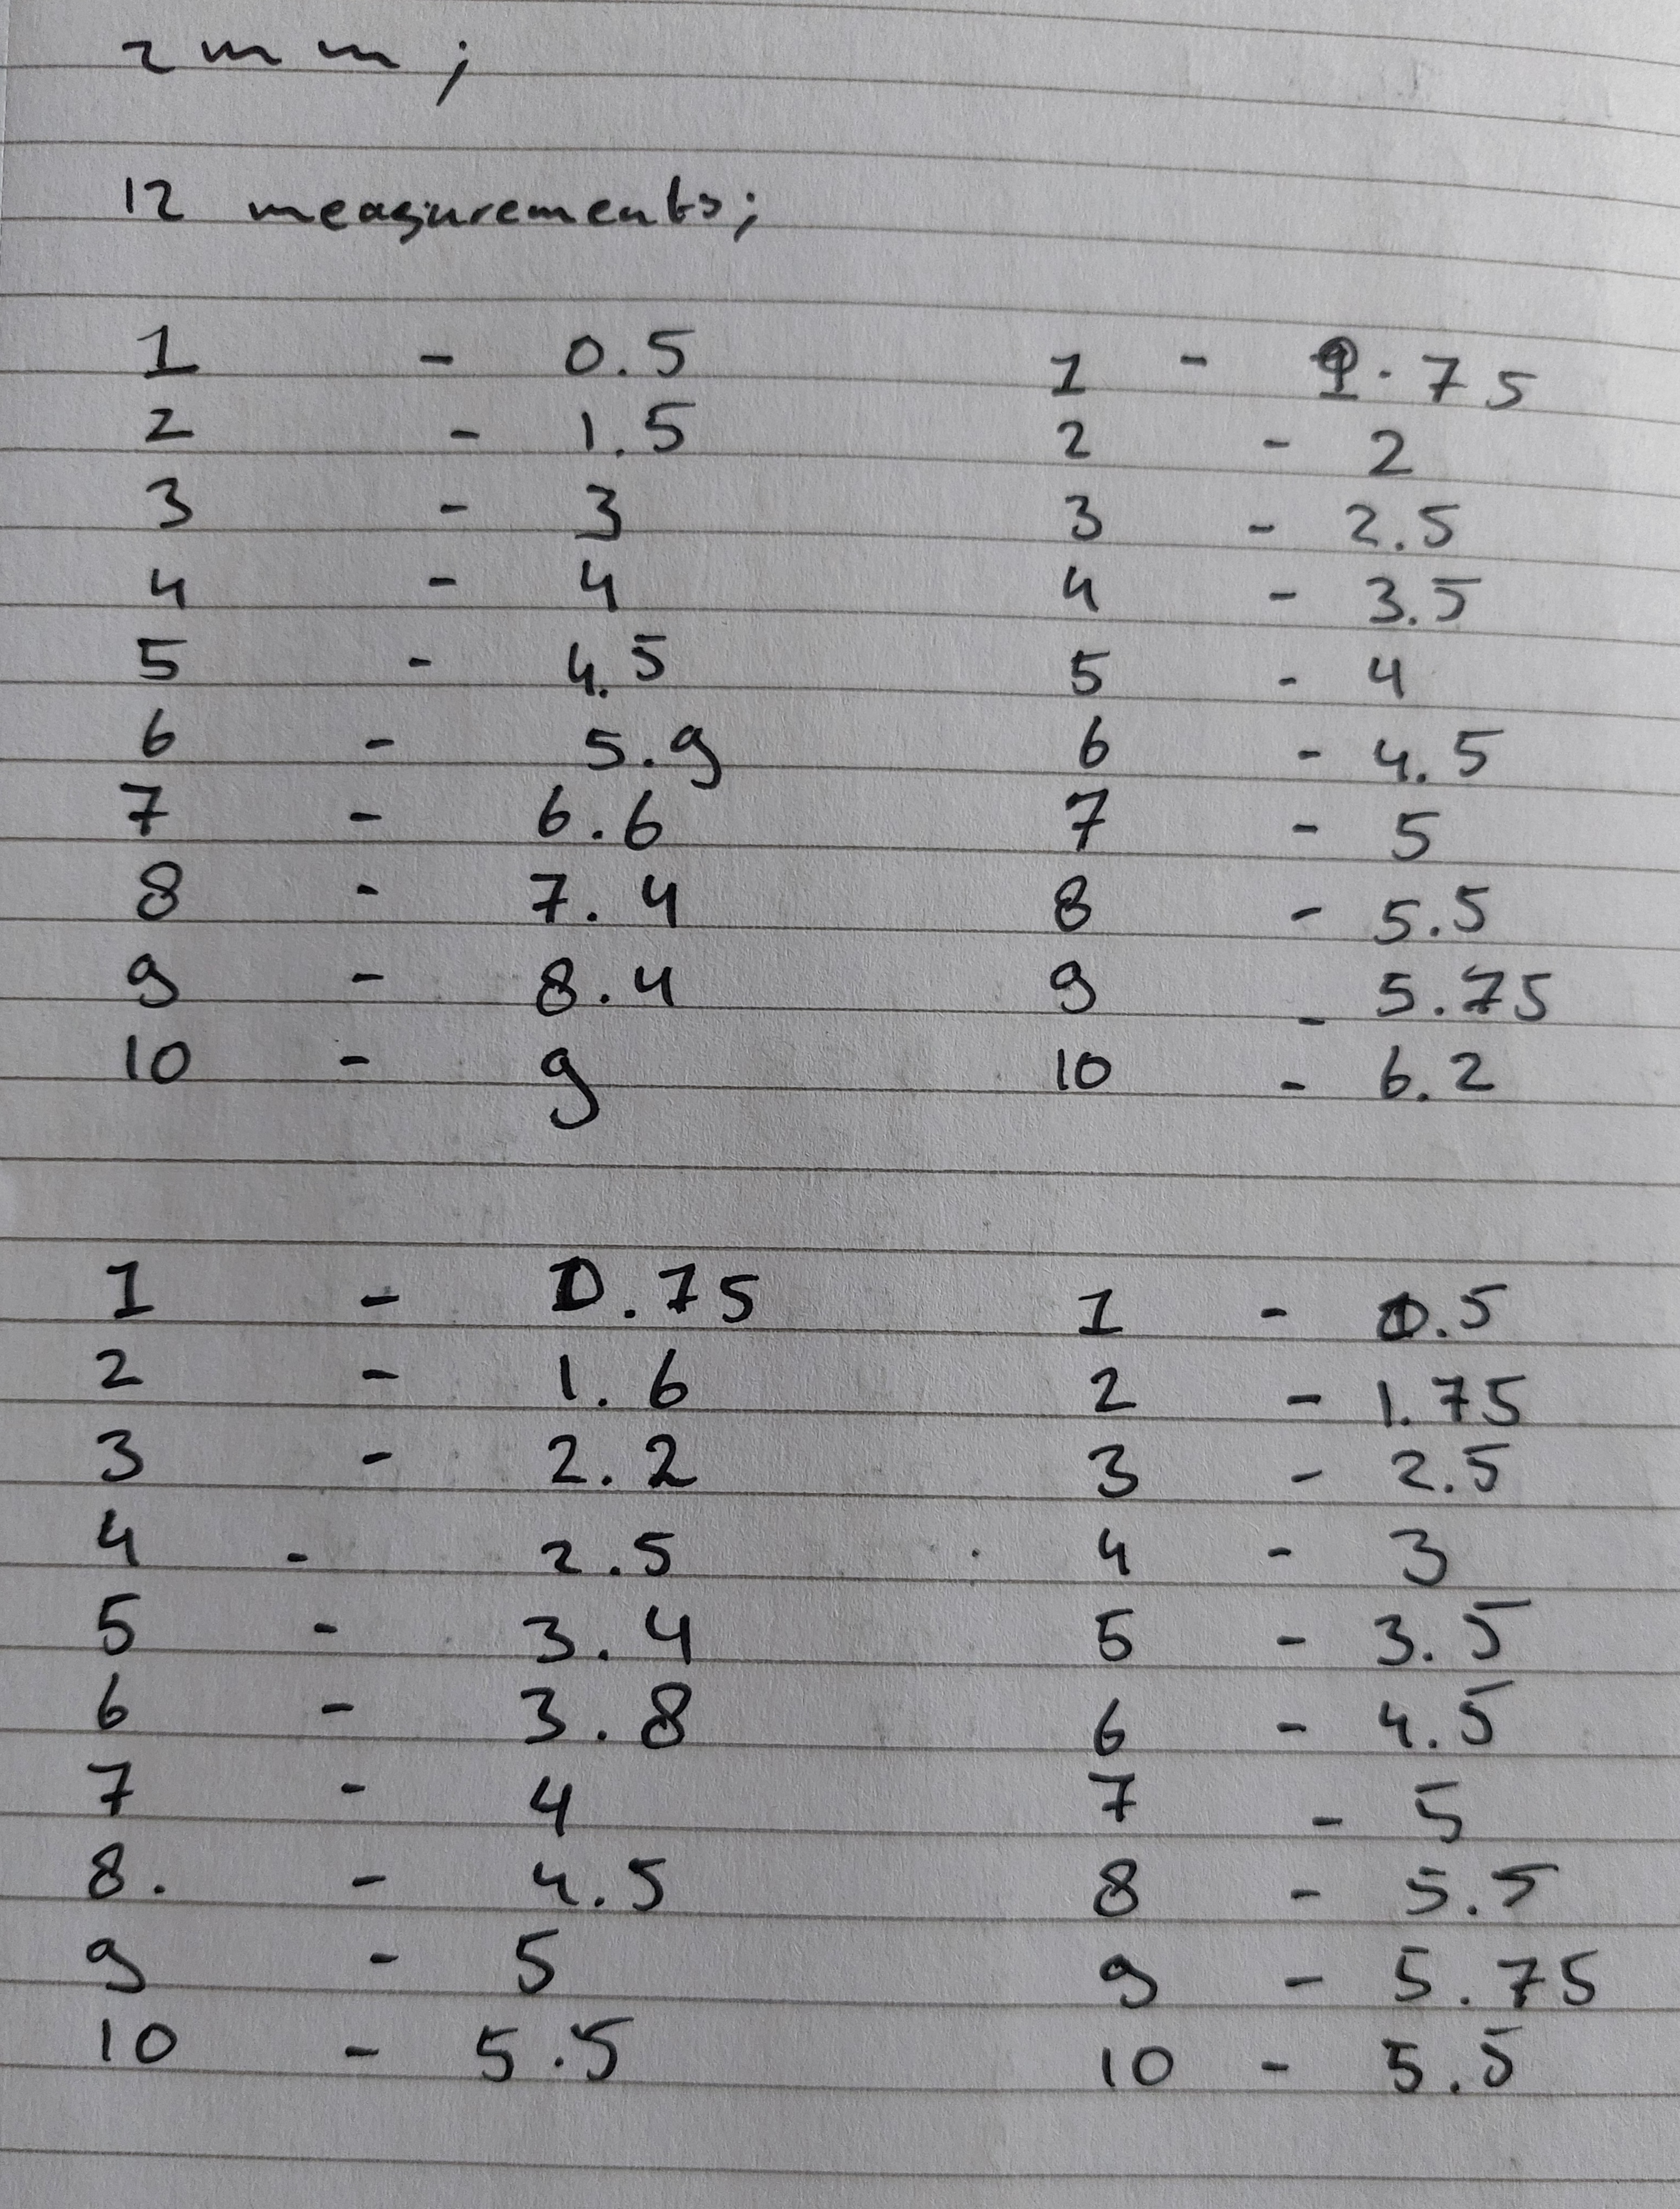 2mm;
12 measurements;
1 - 0.5
2 - 1.5
3 - 3
4 - 4
5 - 4.5
6 - 5.9
7 - 6.6
8 - 7.4
9 - 8.4
10 - 9
1 - .75
2 - 2
3 - 2.5
4 - 3.5
5 - 4
6 - 4.5
7 - 5
8 - 5.5
9 - 5.75
10 - 6.2
1 - 0.75
2 - 1.6
3 - 2.2
4 - 2.5
5 - 3.4
6 - 3.8
7 - 4
8. - 4.5
9 - 5
10 - 5.5
1 - 0.5
2 - 1.75
3 - 2.5
4 - 3
5 - 3.5
6 - 4.5
7 - 5
8 - 5.5
9 - 5.75
10 - 5.5